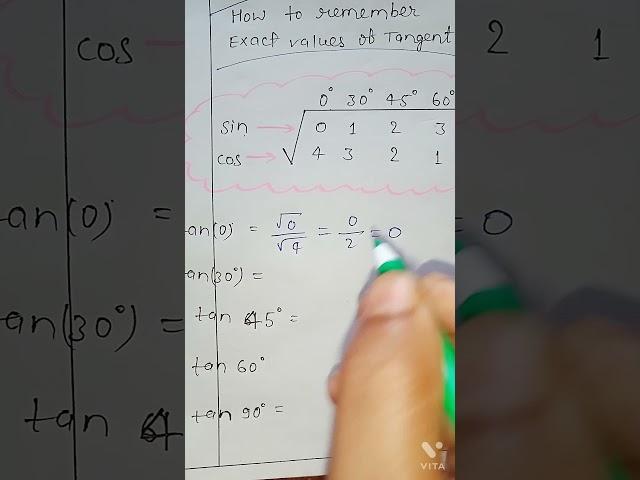 How to remember
Exact values of Tangent
cos
2 1
0° 30° 45° 60°
sin → 0 1 2 3
cos → √ 4 3 2 1
an(0) = √0/√4 = 0/2 = 0
an(0) =
= 0
an(30°) =
an(30°) =
tan 45° =
tan 60°
tan 4
tan 90° =
VITA